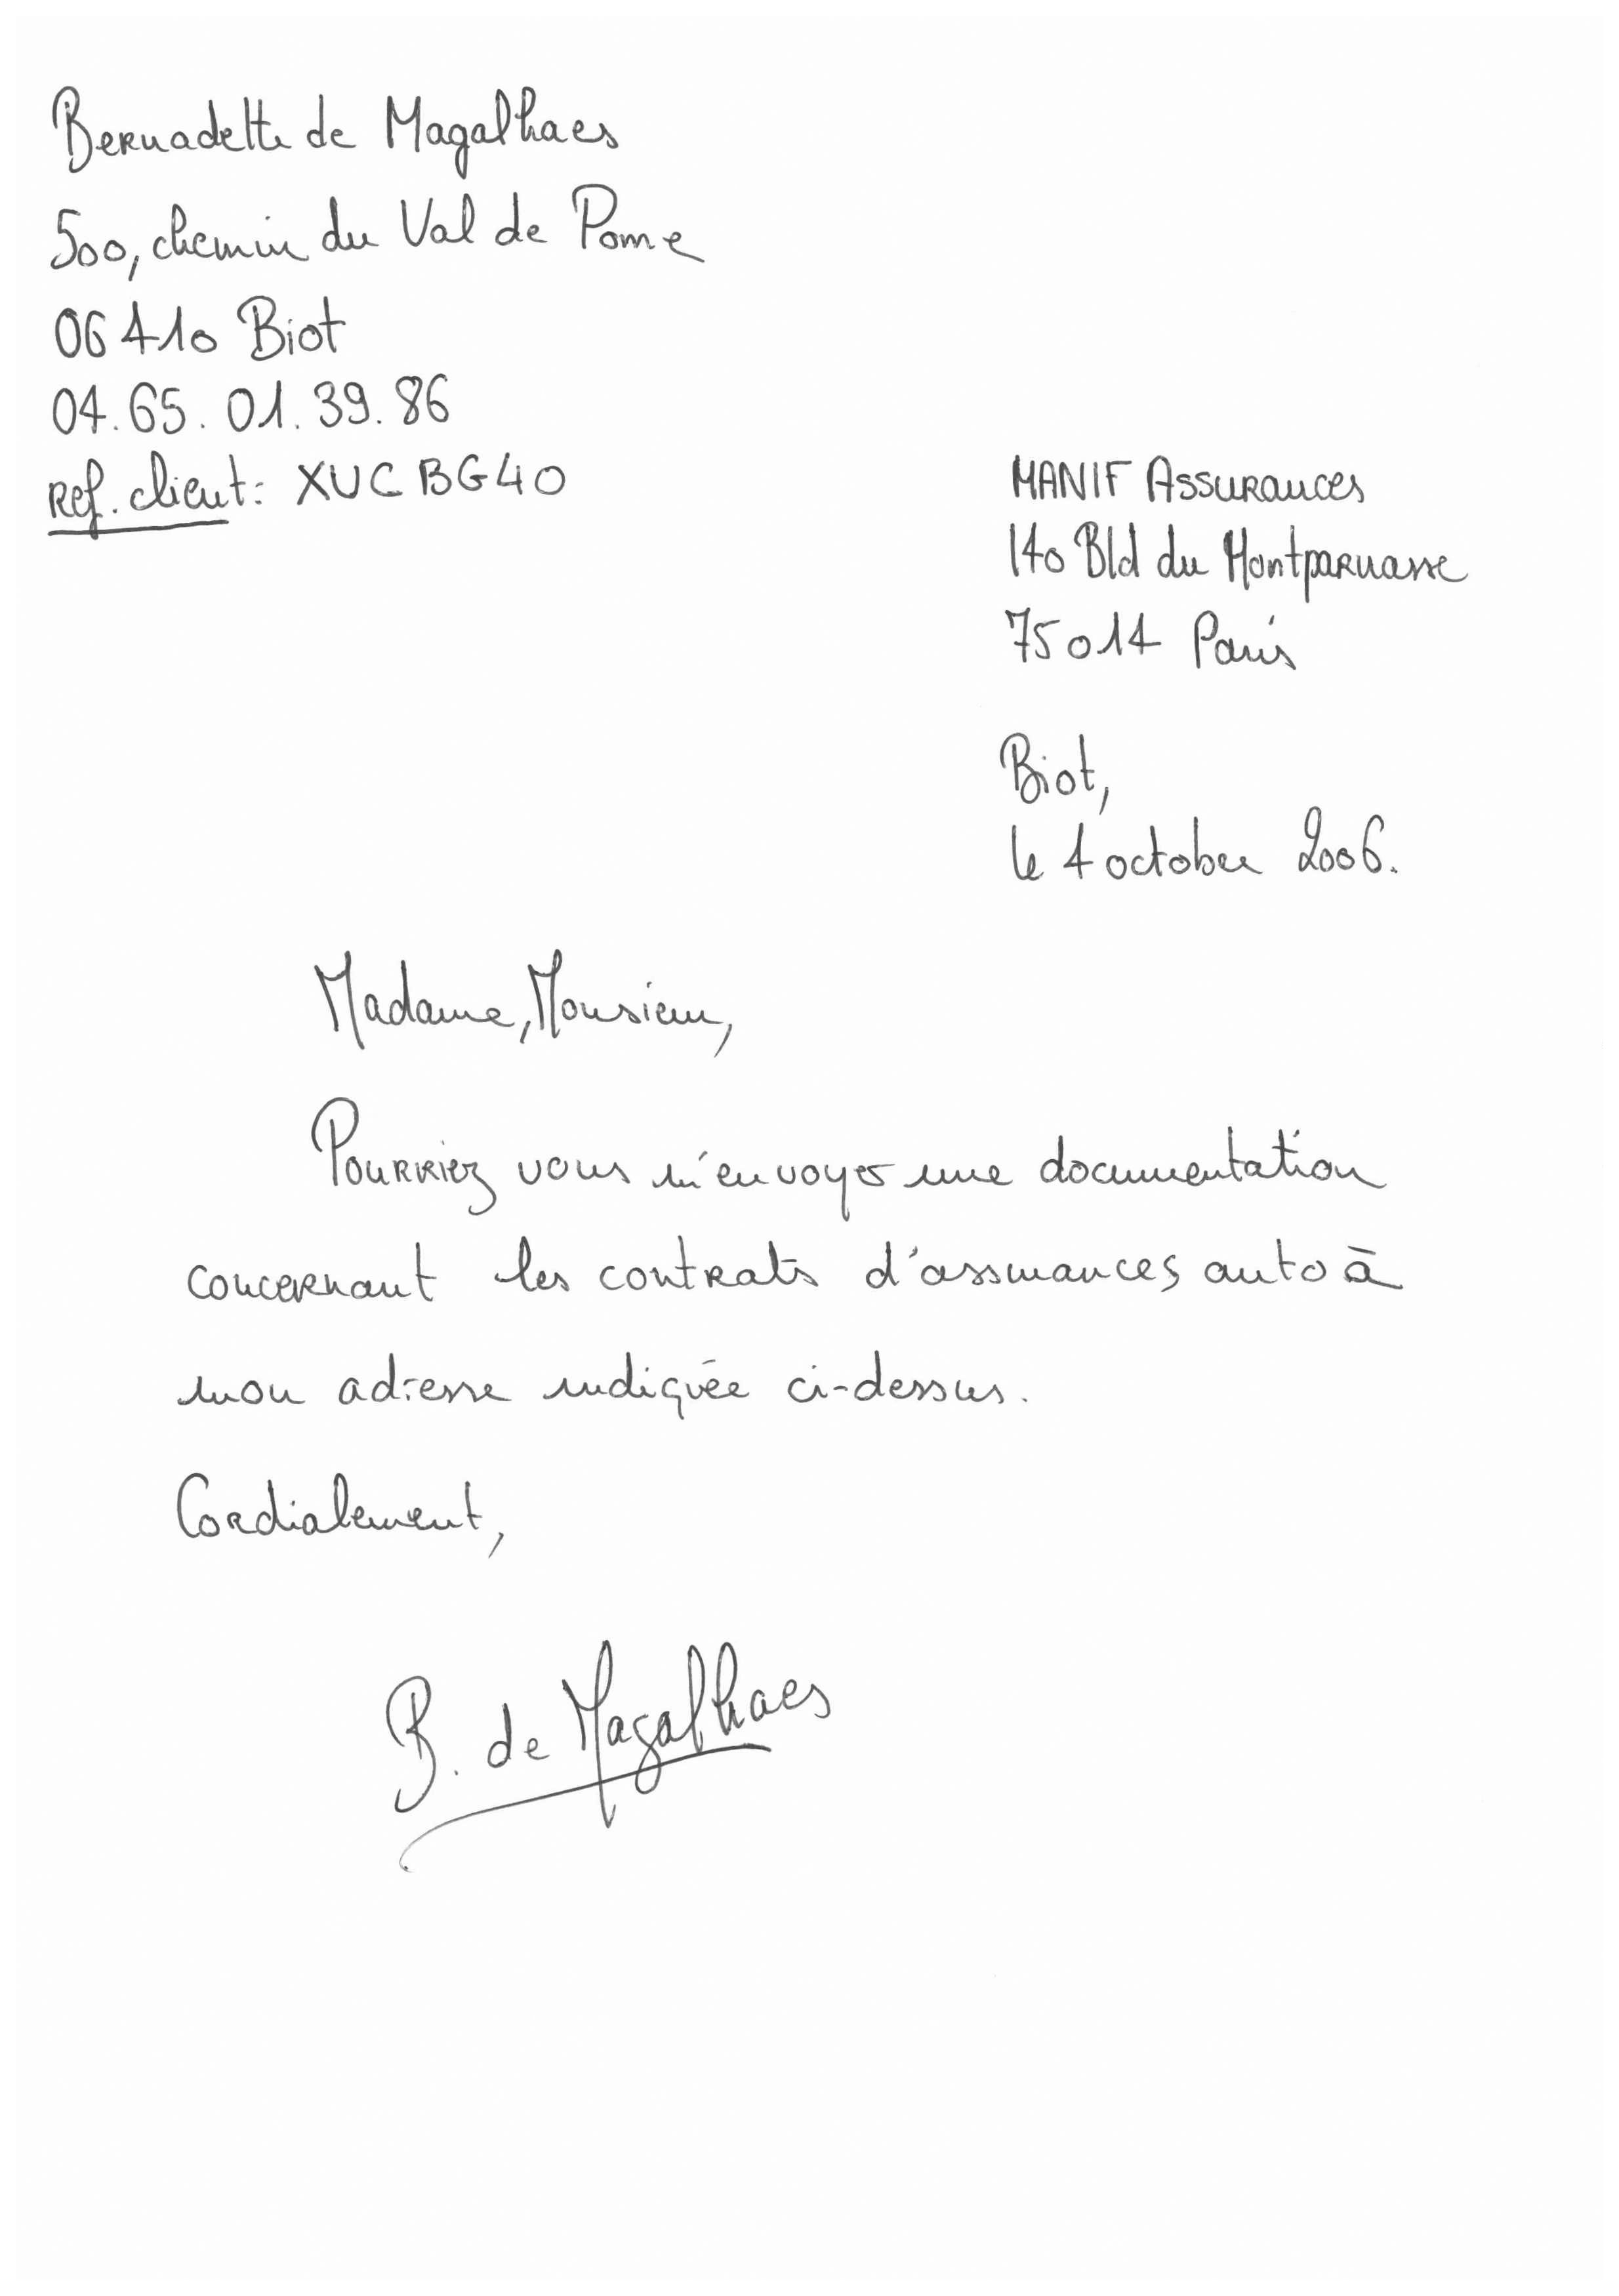 Bernadette de Magalhaes
500, chemin du Val de Pome
06410 Biot
04.65.01.39.86
Ref. client : XUCBG40
MANIF Assurances
140 Bld du Montparnasse
75014 Paris
Biot,
le 4 october 2006.
Madame, Monsieur,
Pourriez vous m'envoyer une documentation
concernant les contrats d'assurances auto à
mon adresse indiquée ci-dessus.
Cordialement,
B. de Magalhaes